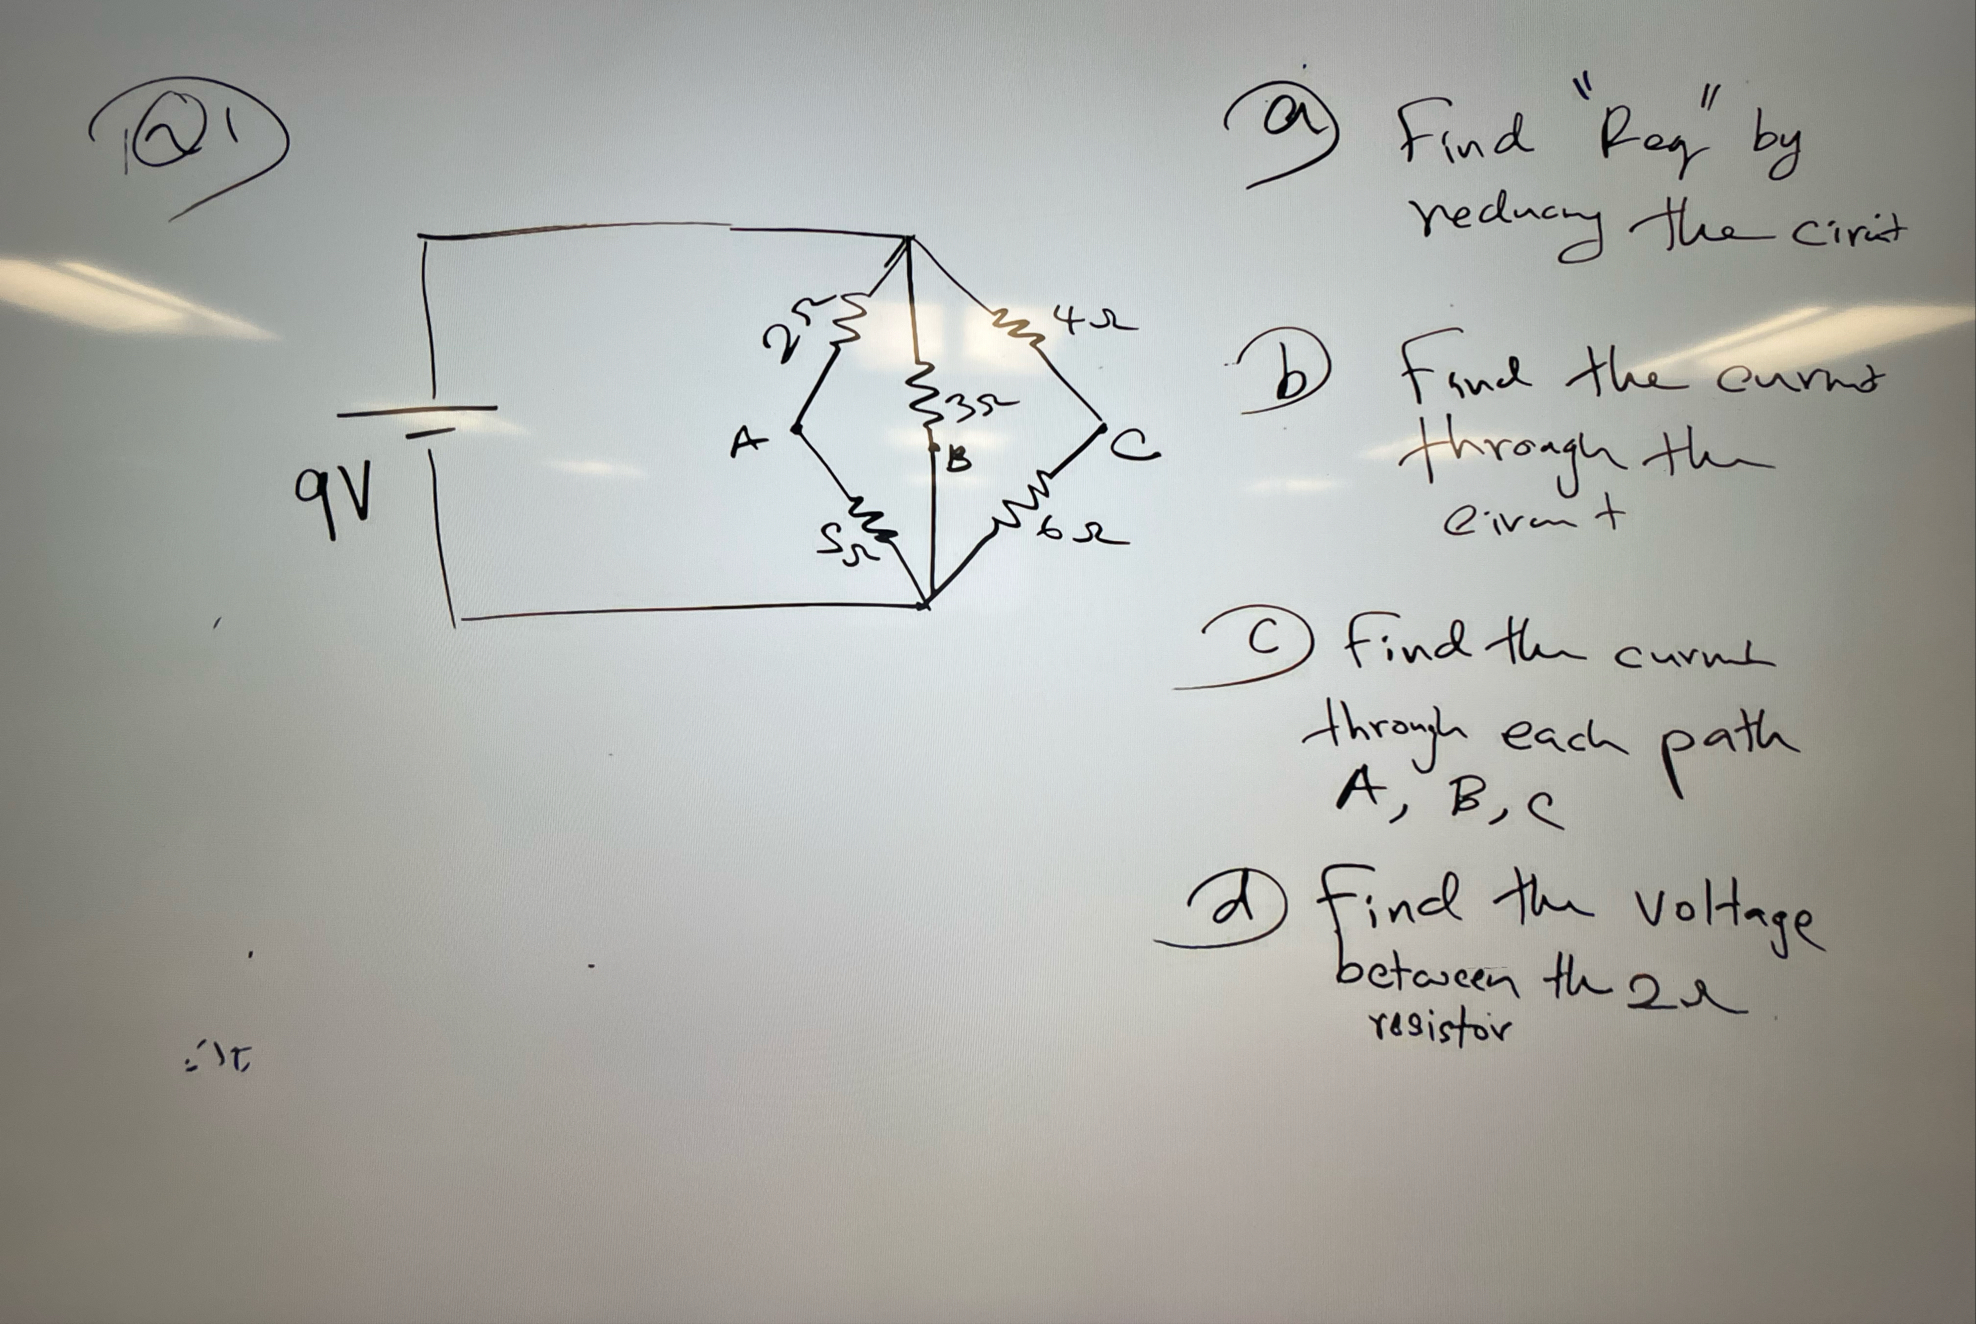 Q1
9V
2Ω
3Ω
4Ω
A
B
C
5Ω
6Ω
a Find "Req" by
reducing the cirit
b Find the current
through the
circuit
c Find the current
through each path
A, B, C
d Find the voltage
between the 2Ω
resistor